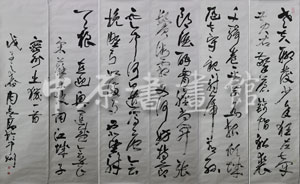 老夫聊發少年狂左牽
黃右擎蒼錦帽貂裘
千騎卷平岡為報傾城
隨太守親射虎看孫
郎酒酣胸膽尚開張
鬢微霜又何妨持節
雲中何日遣馮唐會
挽雕弓如滿月西北望射
天狼
宋蘇軾詞江城子
密州出獵一首
中原書畫館